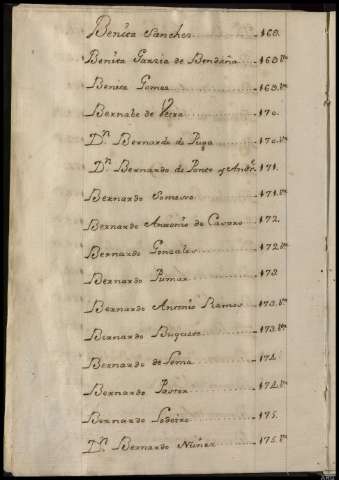 Benita Sanches 168.
Benita Garzia de Bendaña 168 vto
Benita Gomes 169. vto
Bernabe de Veira 170.
Dn. Bernardo de Puga 170. vto
Dn. Bernardo de Ponte y Andr. 171.
Bernardo Somosso 171. vto
Bernardo Antonio de Castro 172.
Bernardo Gonzales 172. vto
Bernardo Pumar 173.
Bernardo Antonio Ramos 173. vto
Bernardo 173. vto
Bernardo de Soma 174
Bernardo Pastor 174. vto
Bernardo Sodeiro 175.
Dn. Bernardo Nuñez 175. vto